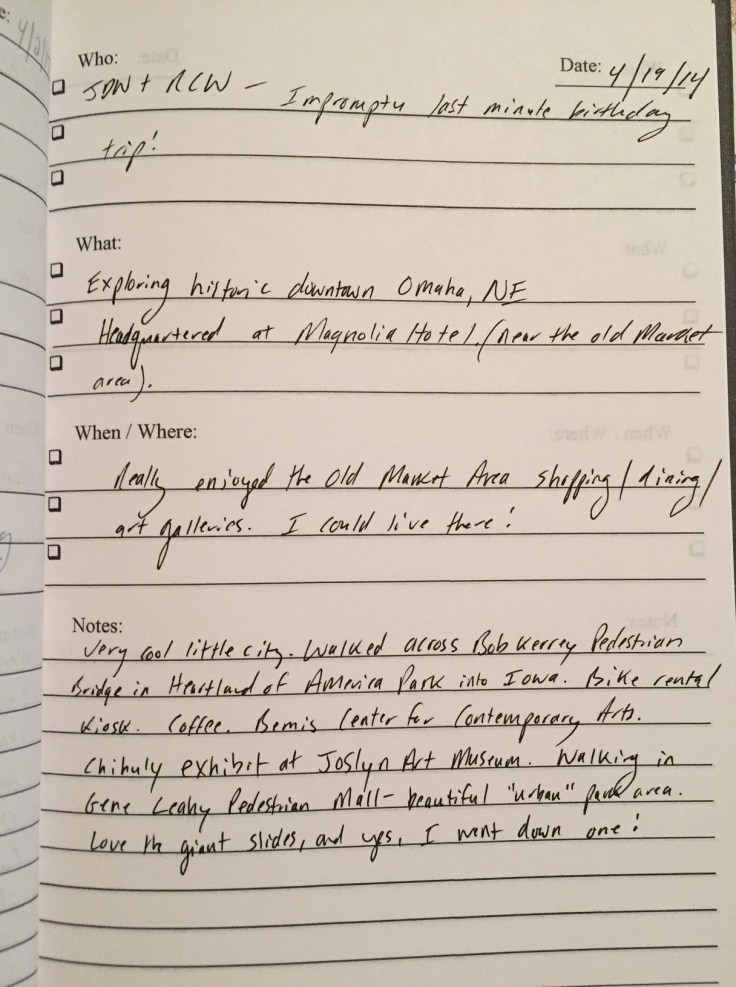 Who:
Date: 4/19/14
JDW + RCW - Impromptu last minute birthday
trip!
What:
Exploring historic downtown Omaha, NE
Headquartered at Magnolia Hotel. (near the old Market
area).
When / Where:
Really enjoyed the Old Market Area shopping/dining/
art galleries. I could live there!
Notes:
Very cool little city. Walked across Bob Kerrey Pedestrian
Bridge in Heartland of America Park into Iowa. Bike rental
Kiosk. Coffee. Bemis Center for Contemporary Arts.
Chihuly exhibit at Joslyn Art Museum. Walking in
Gene Leahy Pedestrian Mall- beautiful "urban" park area.
Love the giant slides, and yes, I went down one!